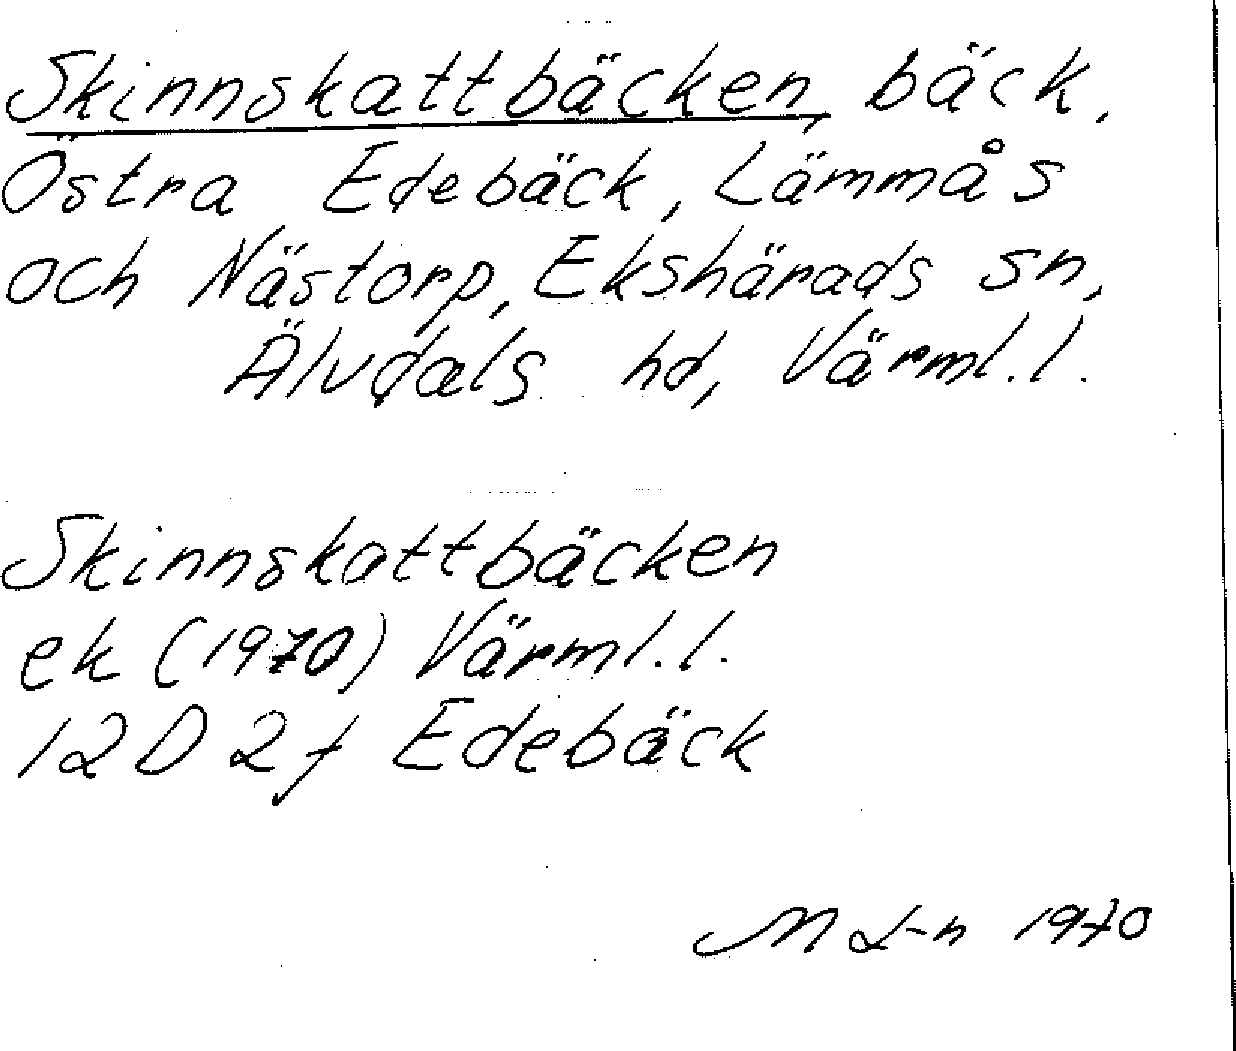 Skinnskattbäcken, bäck.
Östra Edebäck, Lämmås
och Nästorp, Ekshärads sn,
Älvdals hd, Värml.l.
Skinnskattbäcken
ek (1970) Värml.l.
12D 2f Edebäck
M L-n 1970